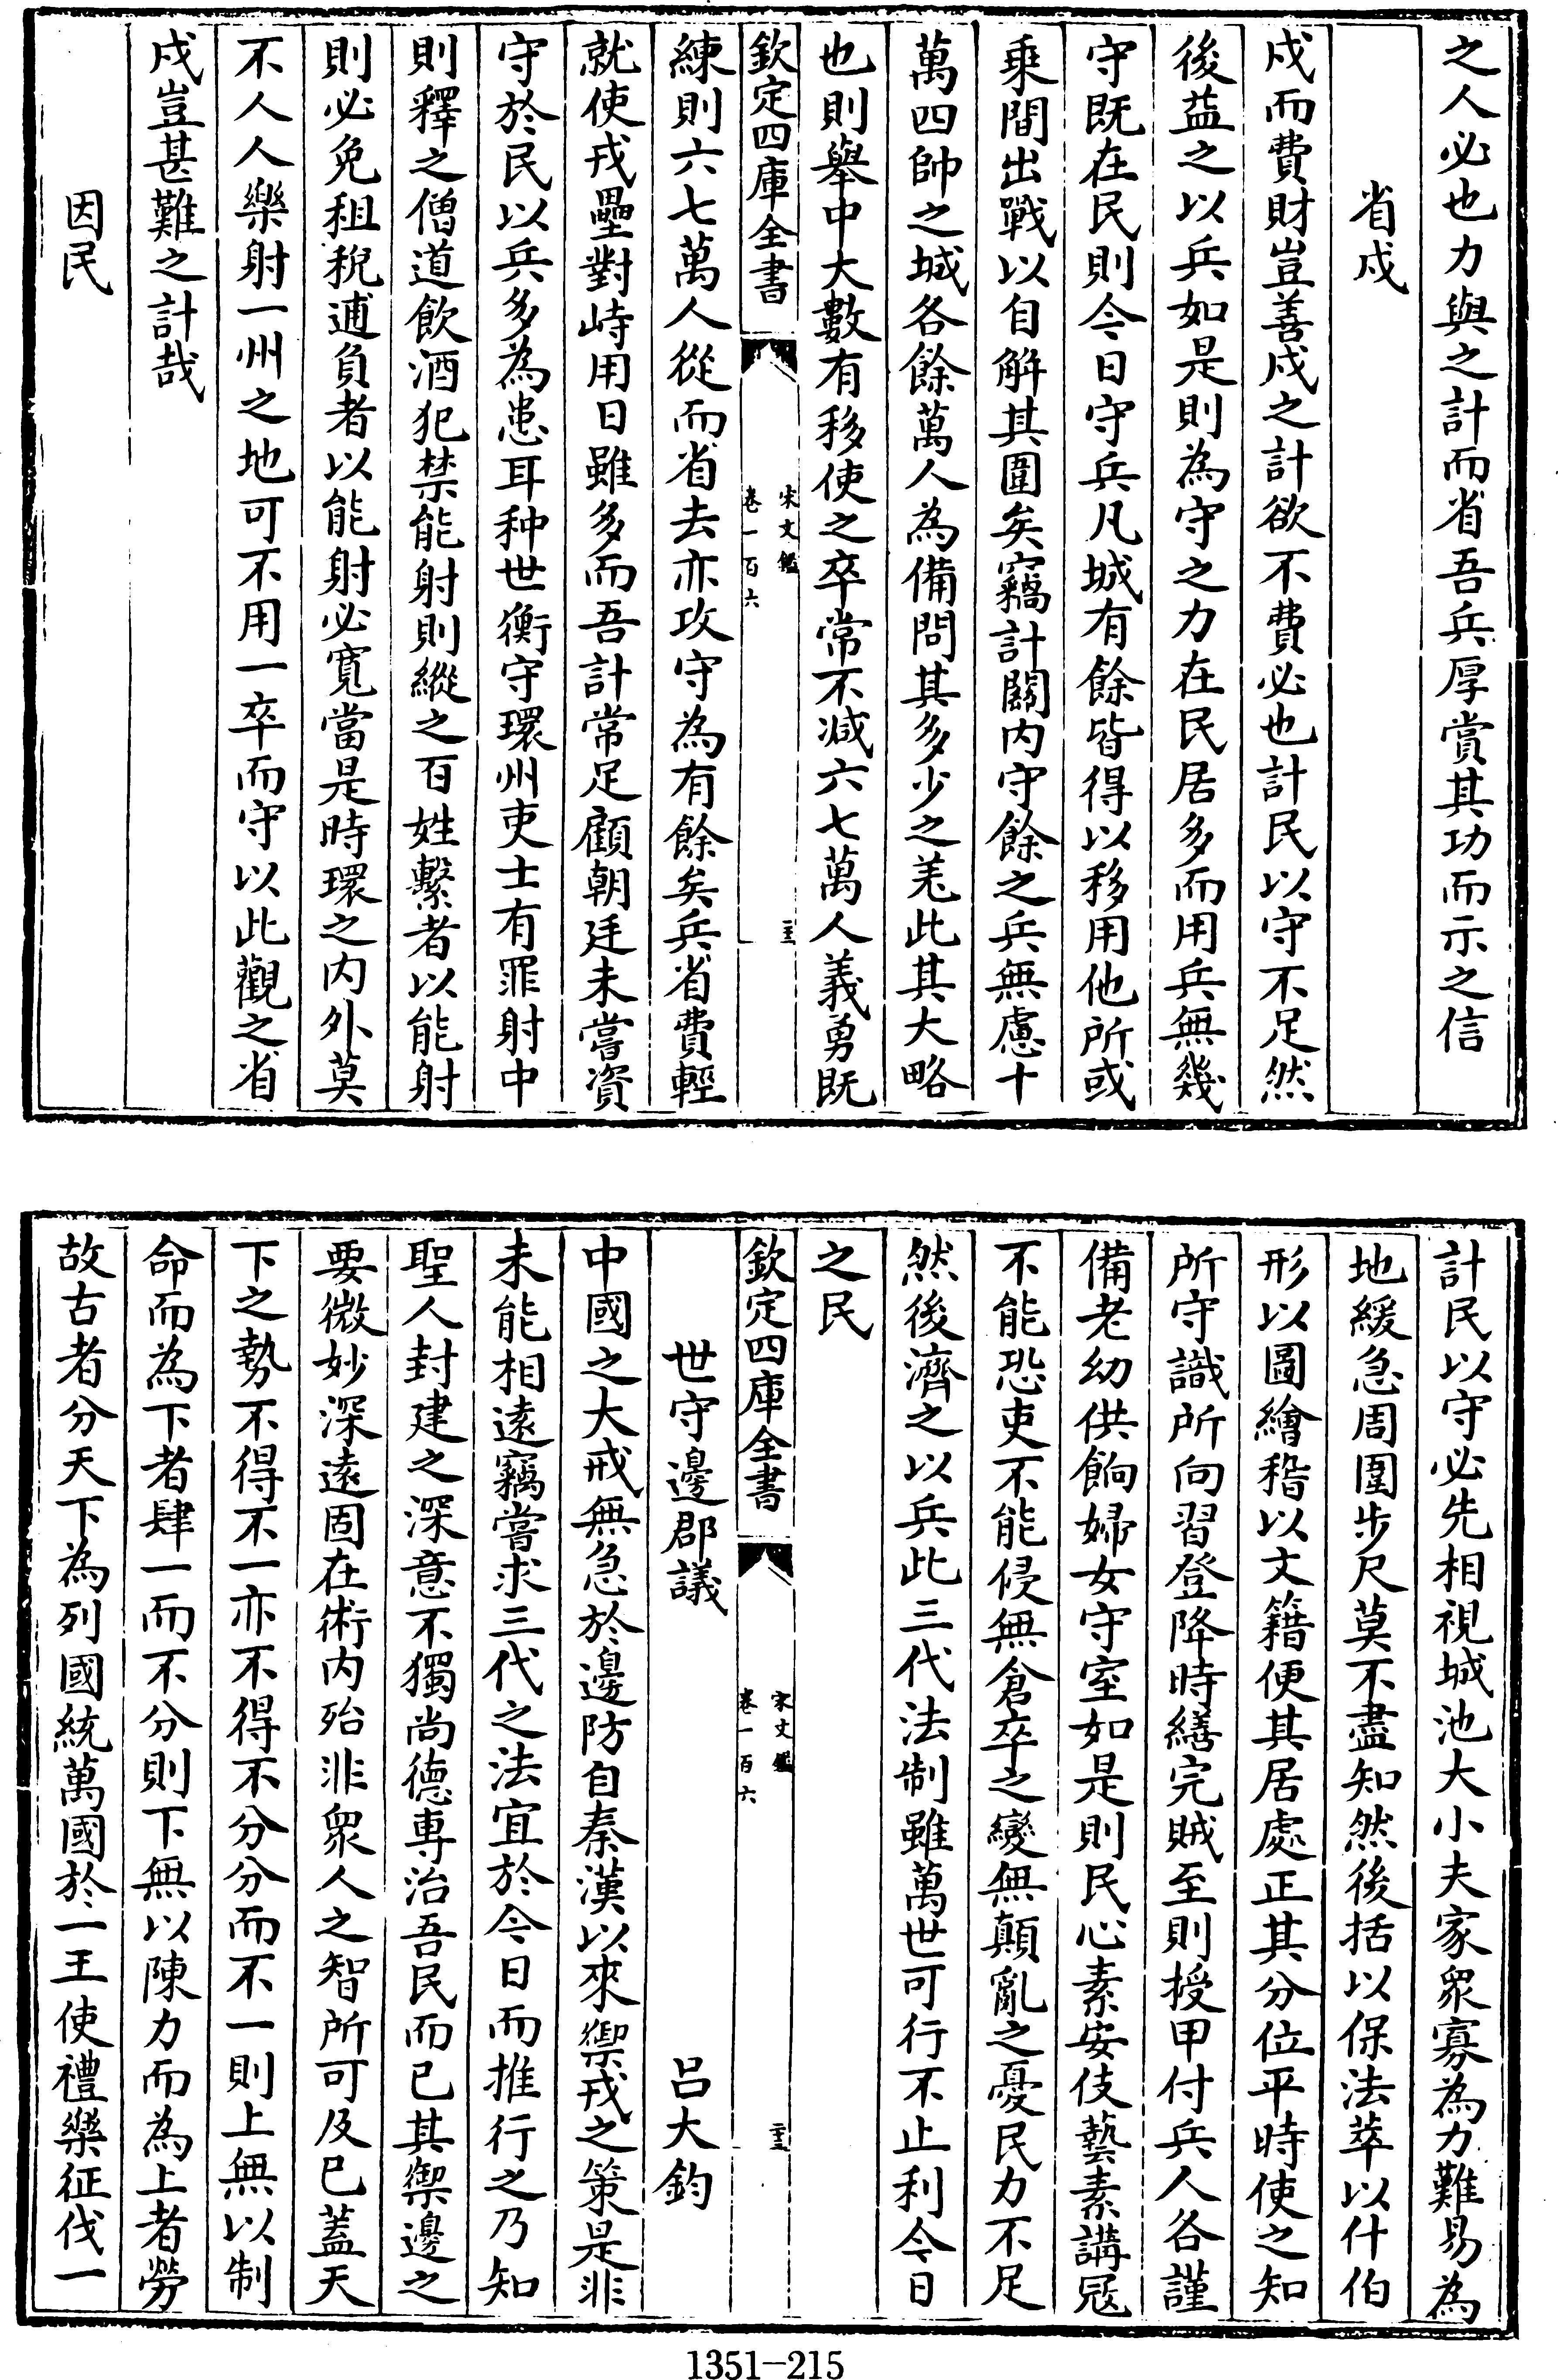 之人必也力與之計而省吾兵厚賞其功而示之信
省戍
戍而費財豈善戍之計欲不費必也計民以守不足然
後益之以兵如是則為守之力在民居多而用兵無幾
守既在民則今日守兵凡城有餘皆得以移用他所或
乘間出戰以自解其圍矣竊計關內守餘之兵無慮十
萬四帥之城各餘萬人為備問其多少之羌此其大略
也則舉中大數有移使之卒常不減六七萬人義勇既
欽定四庫全書
宋文鑑
卷一百六
練則六七萬人從而省去亦攻守為有餘矣兵省費輕
就使戎壘對峙用日雖多而吾計常足顧朝廷未嘗資
守於民以兵多為患耳种世衡守環州吏士有罪射中
則釋之僧道飲酒犯禁能射則縱之百姓繫者以能射
則必免租稅逋負者以能射必寬當是時環之內外莫
不人人樂射一州之地可不用一卒而守以此觀之省
戍豈甚難之計哉
因民
計民以守必先相視城池大小夫家眾寡為力難易為
地緩急周圍步尺莫不盡知然後括以保法萃以什伯
形以圖繪稽以文籍便其居處正其分位平時使之知
所守識所向習登降時繕完賊至則授甲付兵人各謹
備老幼供餉婦女守室如是則民心素安伎藝素講寇
不能恐吏不能侵無倉卒之變無顛亂之憂民力不足
然後濟之以兵此三代法制雖萬世可行不止利今日
之民
欽定四庫全書
宋文鑑
卷一百六
世守邊郡議 呂大鈞
中國之大戒無急於邊防自秦漢以來禦戎之策是非
未能相遠竊嘗求三代之法宜於今日而推行之乃知
聖人封建之深意不獨尚德專治吾民而已其禦邊之
要微妙深遠固在術內殆非眾人之智所可及已蓋天
下之勢不得不一亦不得不分分而不一則上無以制
命而為下者肆一而不分則下無以陳力而為上者勞
故古者分天下為列國統萬國於一王使禮樂征伐一
1351-215